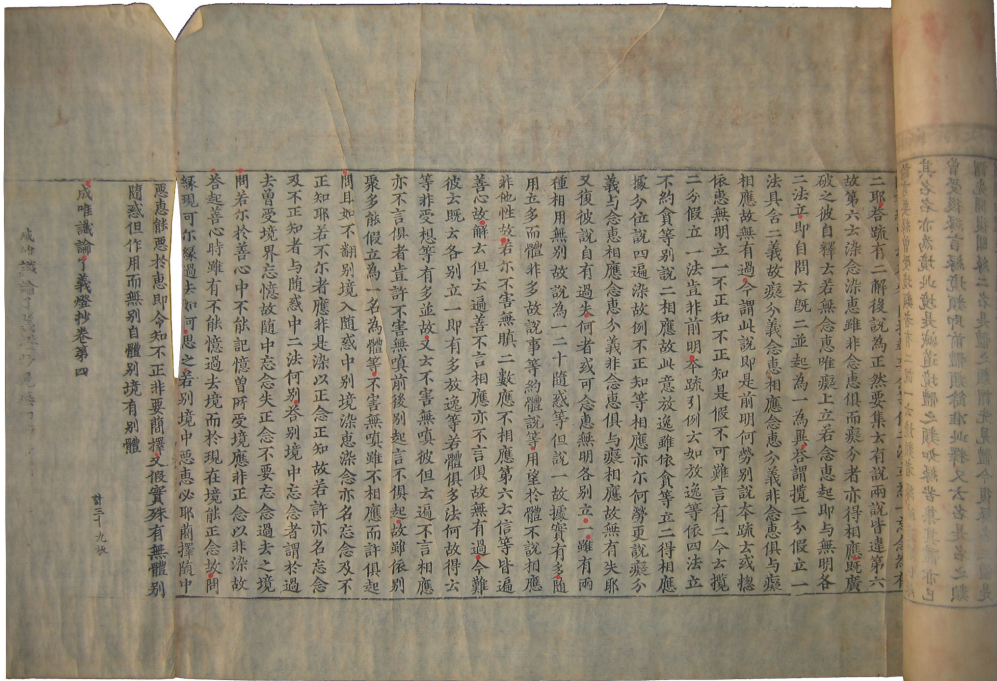 二耶荅䟽有二解後說為正然要集云有說兩說皆違第六
故第六云染念染恵雖非念恵俱而癡分者亦得相應既廣
破之彼自釋云若無念恵唯癡上立若念恵起即與無明各
二法立即自問云既二並起為一為異荅謂攬二分假立一
法具含二義故癡分義念恵相應念恵分義非念恵俱與癡
相應故無有過今謂此說即是前明何勞別說夲䟽云或揔
依恵無明立一不正知不正知是假不可難言有二今云攬
二分假立一法豈非前明夲䟽引例云如放逸等依四法立
不約貪等別說二相應故此意放逸雖依貪等立二得相應
據分位說四遍染故例不正知等相應亦尔何勞更說癡分
義與念恵相應念恵分義非念恵俱與癡相應故無有失耶
又復彼說自有過失何者或可念恵無明各別立一雖有兩
種相用無別故說為一二十隨惑等但說一故據實有多隨
用立多而體非多故說事等約體說等用望於體不說相應
非他性故若尔不害無瞋二數應不相應第六云信等皆遍
善心故解云但云遍善不言相應亦不言俱故無有過今難
彼云既云各別立一即有多放逸等若體俱多法何故得云
等非受想等有多並故又云不害無嗔彼但云遍不言相應
亦不言俱者豈許不害無嗔前後別起言不俱起故雖依別
聚多能假立為一名為體等不害無嗔雖不相應而許俱起
問且如不翻別境入隨惑中別境染恵染念亦名忘念及不
正知耶若不尔者應非是染以正念正知故若許亦名忘念
及不正知者与隨惑中二法何別荅別境中忘念者謂於過
去曾受境界忘憶故隨中忘念失正念不要忘念過去之境
問若尔於善心中不能記憶曾所受境應非正念以非染故
荅起善心時雖有不能憶過去境而於現在境能正念故問
緣現可尔緣過去如何思之若別境中惡恵必耶蕳擇隨中
惡恵雖惡於恵即令知不正非要蕳擇又假實殊有無體別
隨惑但作用而無別自體別境有別體
計三十九板
成唯識論了義燈抄卷第四